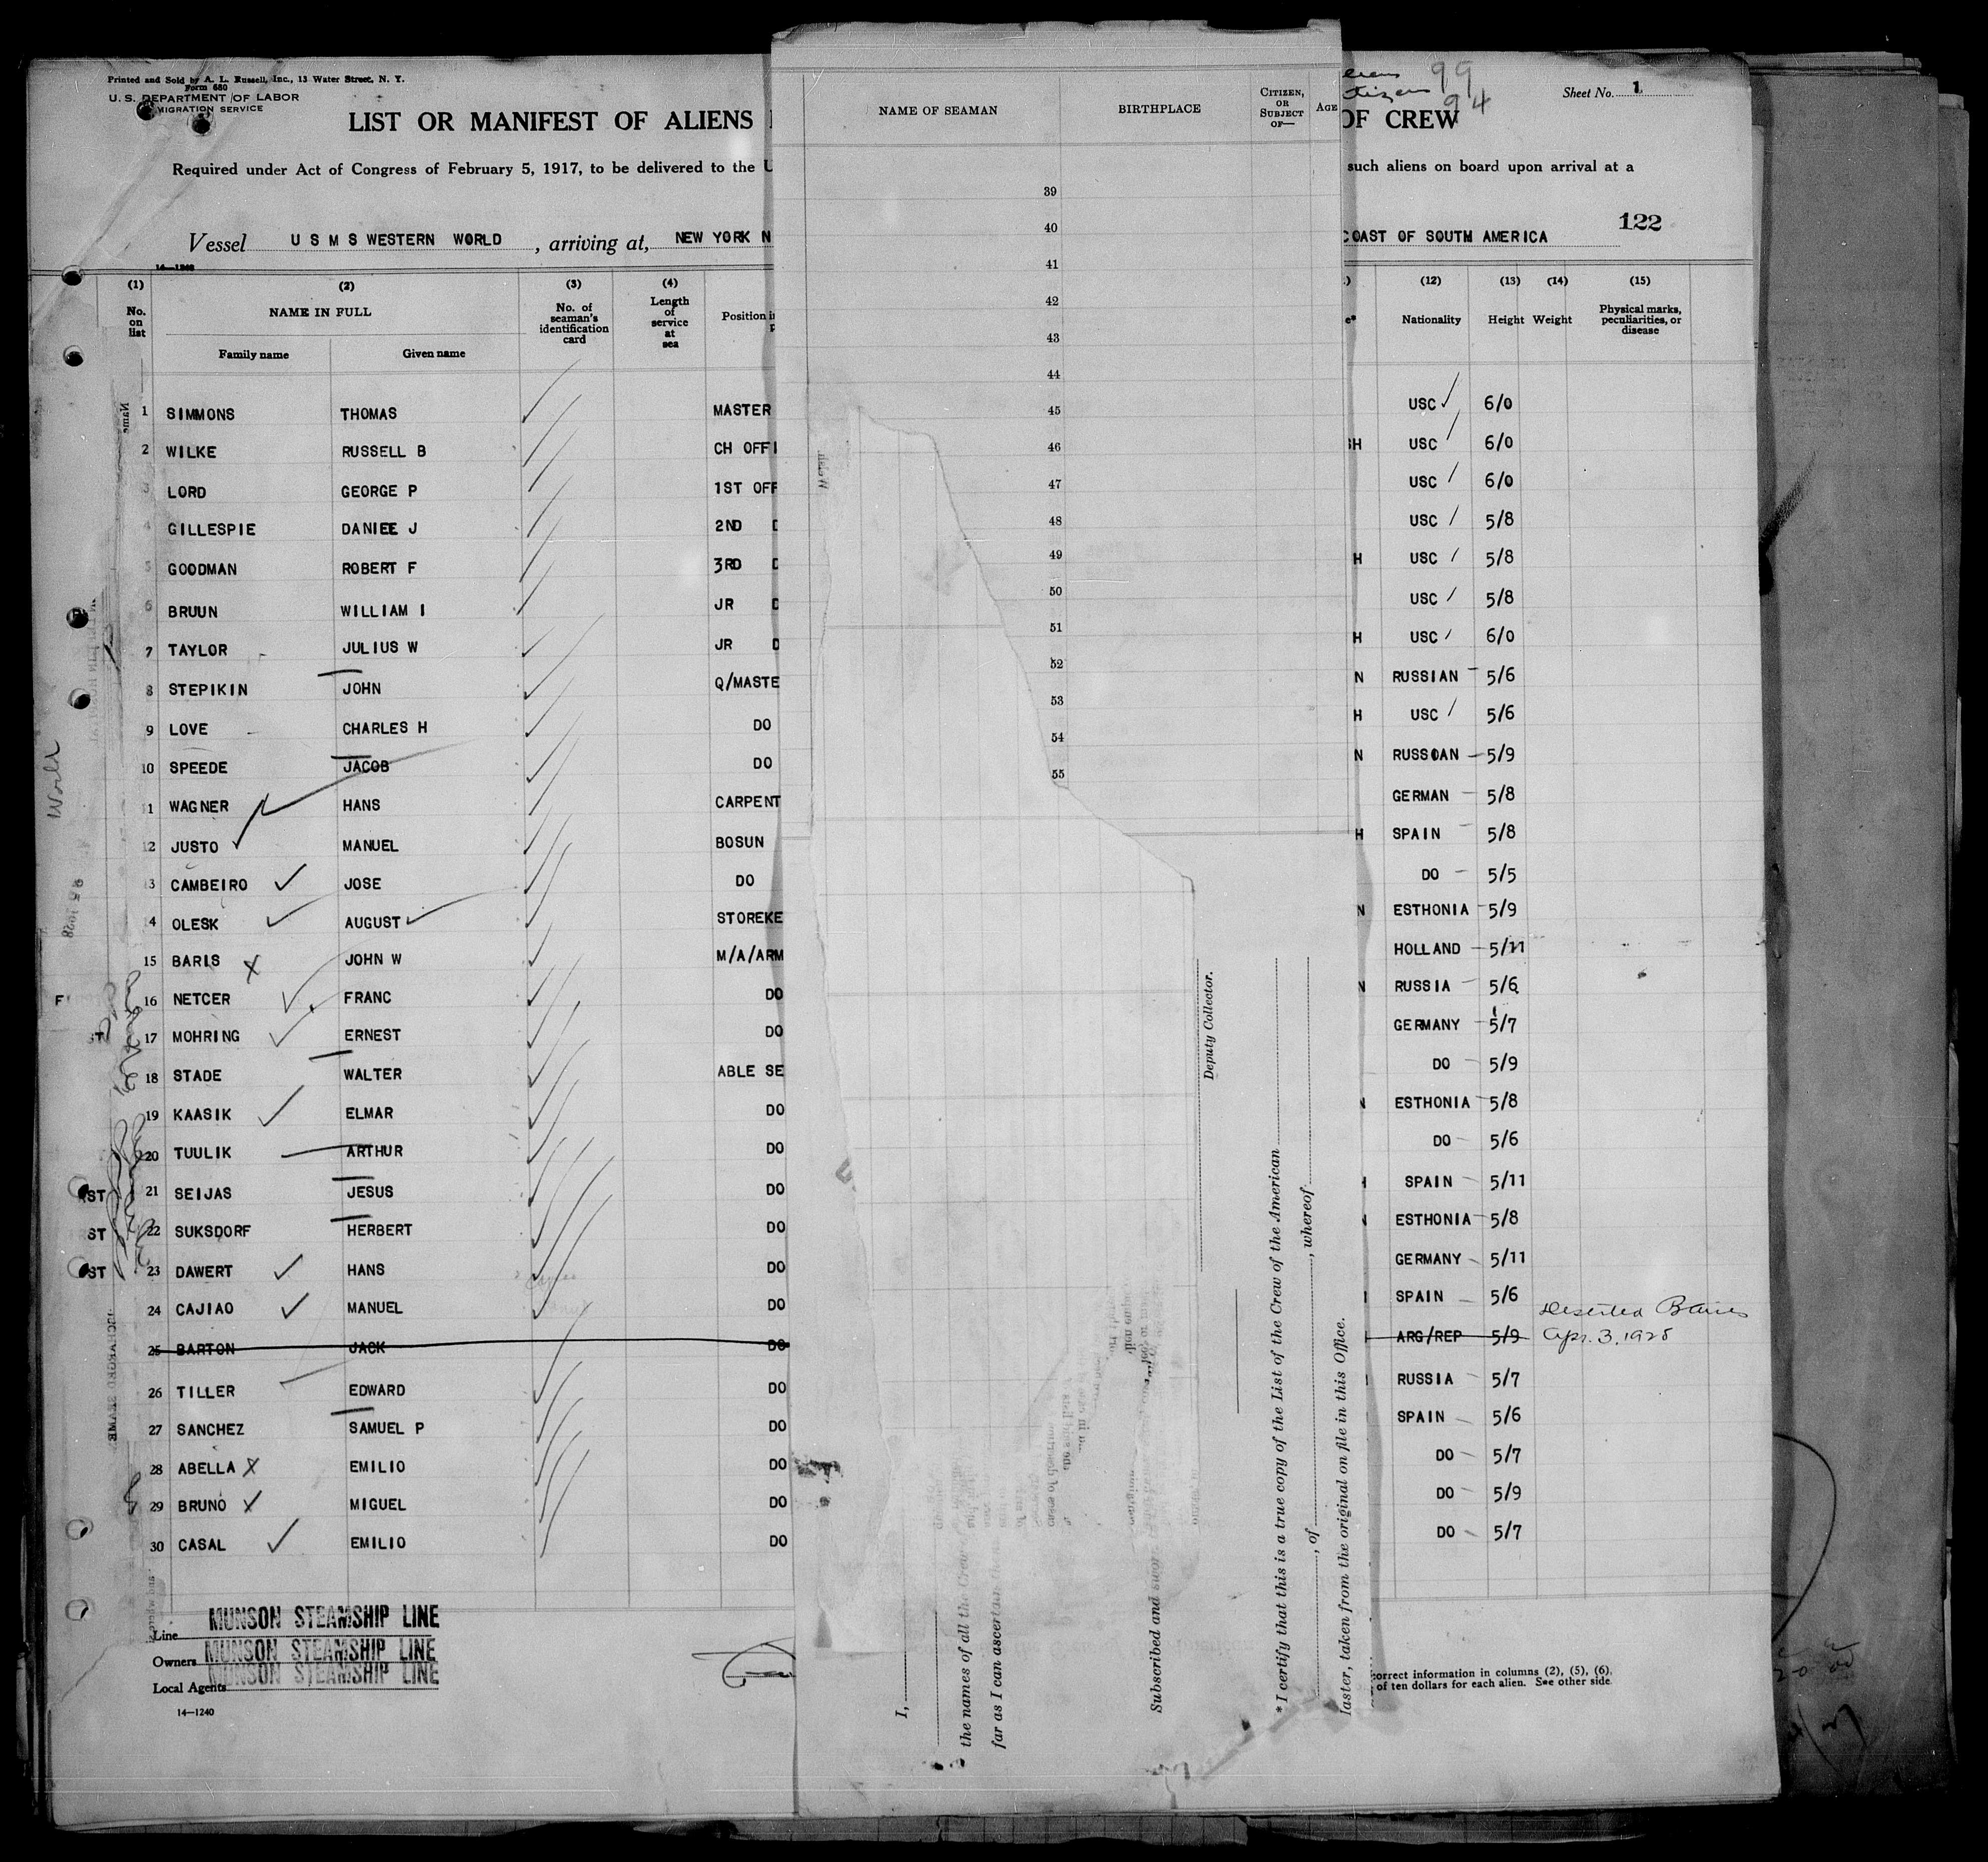 Printed and Sold by A. L. Russell, Inc., 13 Water Street, N. Y.
Form 680
U. S. DEPARTMENT OF LABOR
MIGRATION SERVICE
LIST OR MANIFEST OF ALIENS
OF CREW
99
94
Sheet No. 1
Required under Act of Congress of February 5, 1917, to be delivered to the U
such aliens on board upon arrival at a
Vessel U S M S WESTERN WORLD, arriving at, NEW YORK N
COAST OF SOUTH AMERICA
122
14-1240
(1) (2) (3) (4) (12) (13) (14) (15)
No. on list
NAME IN FULL
Family name Given name
No. of seaman's identification card
Length of service at sea
Position
Nationality
Height
Weight
Physical marks, peculiarities, or disease
1 SIMMONS THOMAS MASTER USC 6/0
2 WILKE RUSSELL B CH OFFI SH USC 6/0
3 LORD GEORGE P 1ST OFF USC 6/0
4 GILLESPIE DANIEL J 2ND USC 5/8
5 GOODMAN ROBERT F 3RD H USC 5/8
6 BRUUN WILLIAM I JR USC 5/8
7 TAYLOR JULIUS W JR H USC 6/0
8 STEPIKIN JOHN Q/MASTE N RUSSIAN 5/6
9 LOVE CHARLES H DO H USC 5/6
10 SPEEDE JACOB DO N RUSSIAN 5/9
11 WAGNER HANS CARPENT GERMAN 5/8
12 JUSTO MANUEL BOSUN H SPAIN 5/8
13 CAMBEIRO JOSE DO DO 5/5
14 OLESK AUGUST STOREKE N ESTHONIA 5/9
15 BARIS JOHN W M/A/ARM HOLLAND 5/11
16 NETCER FRANC DO N RUSSIA 5/6
17 MOHRING ERNEST DO GERMANY 5/7
18 STADE WALTER ABLE SE DO 5/9
19 KAASIK ELMAR DO N ESTHONIA 5/8
20 TUULIK ARTHUR DO DO 5/6
21 SEIJAS JESUS DO SPAIN 5/11
22 SUKSDORF HERBERT DO ESTHONIA 5/8
23 DAWERT HANS DO GERMANY 5/11
24 CAJIAO MANUEL DO SPAIN 5/6
25 BARTON JACK DO ARG/REP 5/9 Deserted B Aires Apr. 3, 1928
26 TILLER EDWARD DO RUSSIA 5/7
27 SANCHEZ SAMUEL P DO SPAIN 5/6
28 ABELLA EMILIO DO DO 5/7
29 BRUNO MIGUEL DO DO 5/9
30 CASAL EMILIO DO DO 5/7
Line MUNSON STEAMSHIP LINE
Owners MUNSON STEAMSHIP LINE
Local Agents MUNSON STEAMSHIP LINE
14-1240
correct information in columns (2), (5), (6),
of ten dollars for each alien. See other side.
NAME OF SEAMAN BIRTHPLACE CITIZEN, OR SUBJECT OF— AGE
39
40
41
42
43
44
45
46
47
48
49
50
51
52
53
54
55
Deputy Collector.
I,
the names of all the Crew
far as I can ascertain
Subscribed and sworn
* I certify that this is a true copy of the List of the Crew of the American
, of , whereof
laster, taken from the original on file in this Office.
World